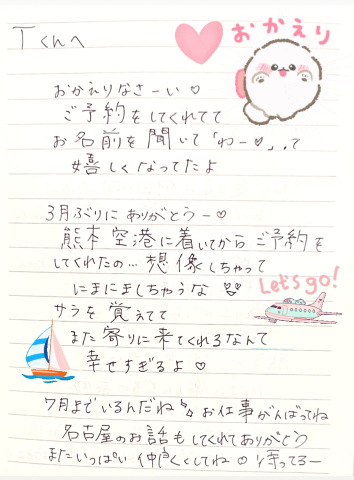 Tくんへ
おかえり
おかえりなさーい♡
ご予約をしてくれてて
お名前を聞いて「わー♡」って
嬉しくなってたよ
3月ぶりにありがとうー♡
熊本空港に着いてからご予約を
してくれたの…想像しちゃって
にまにましちゃうな
Let's go!
サラを覚えてて
また寄りに来てくれるなんて
幸せすぎるよ♡
7月までいるんだね お仕事がんばってね
名古屋のお話もしてくれてありがとう
またいっぱい仲良くしてね♡待ってるー